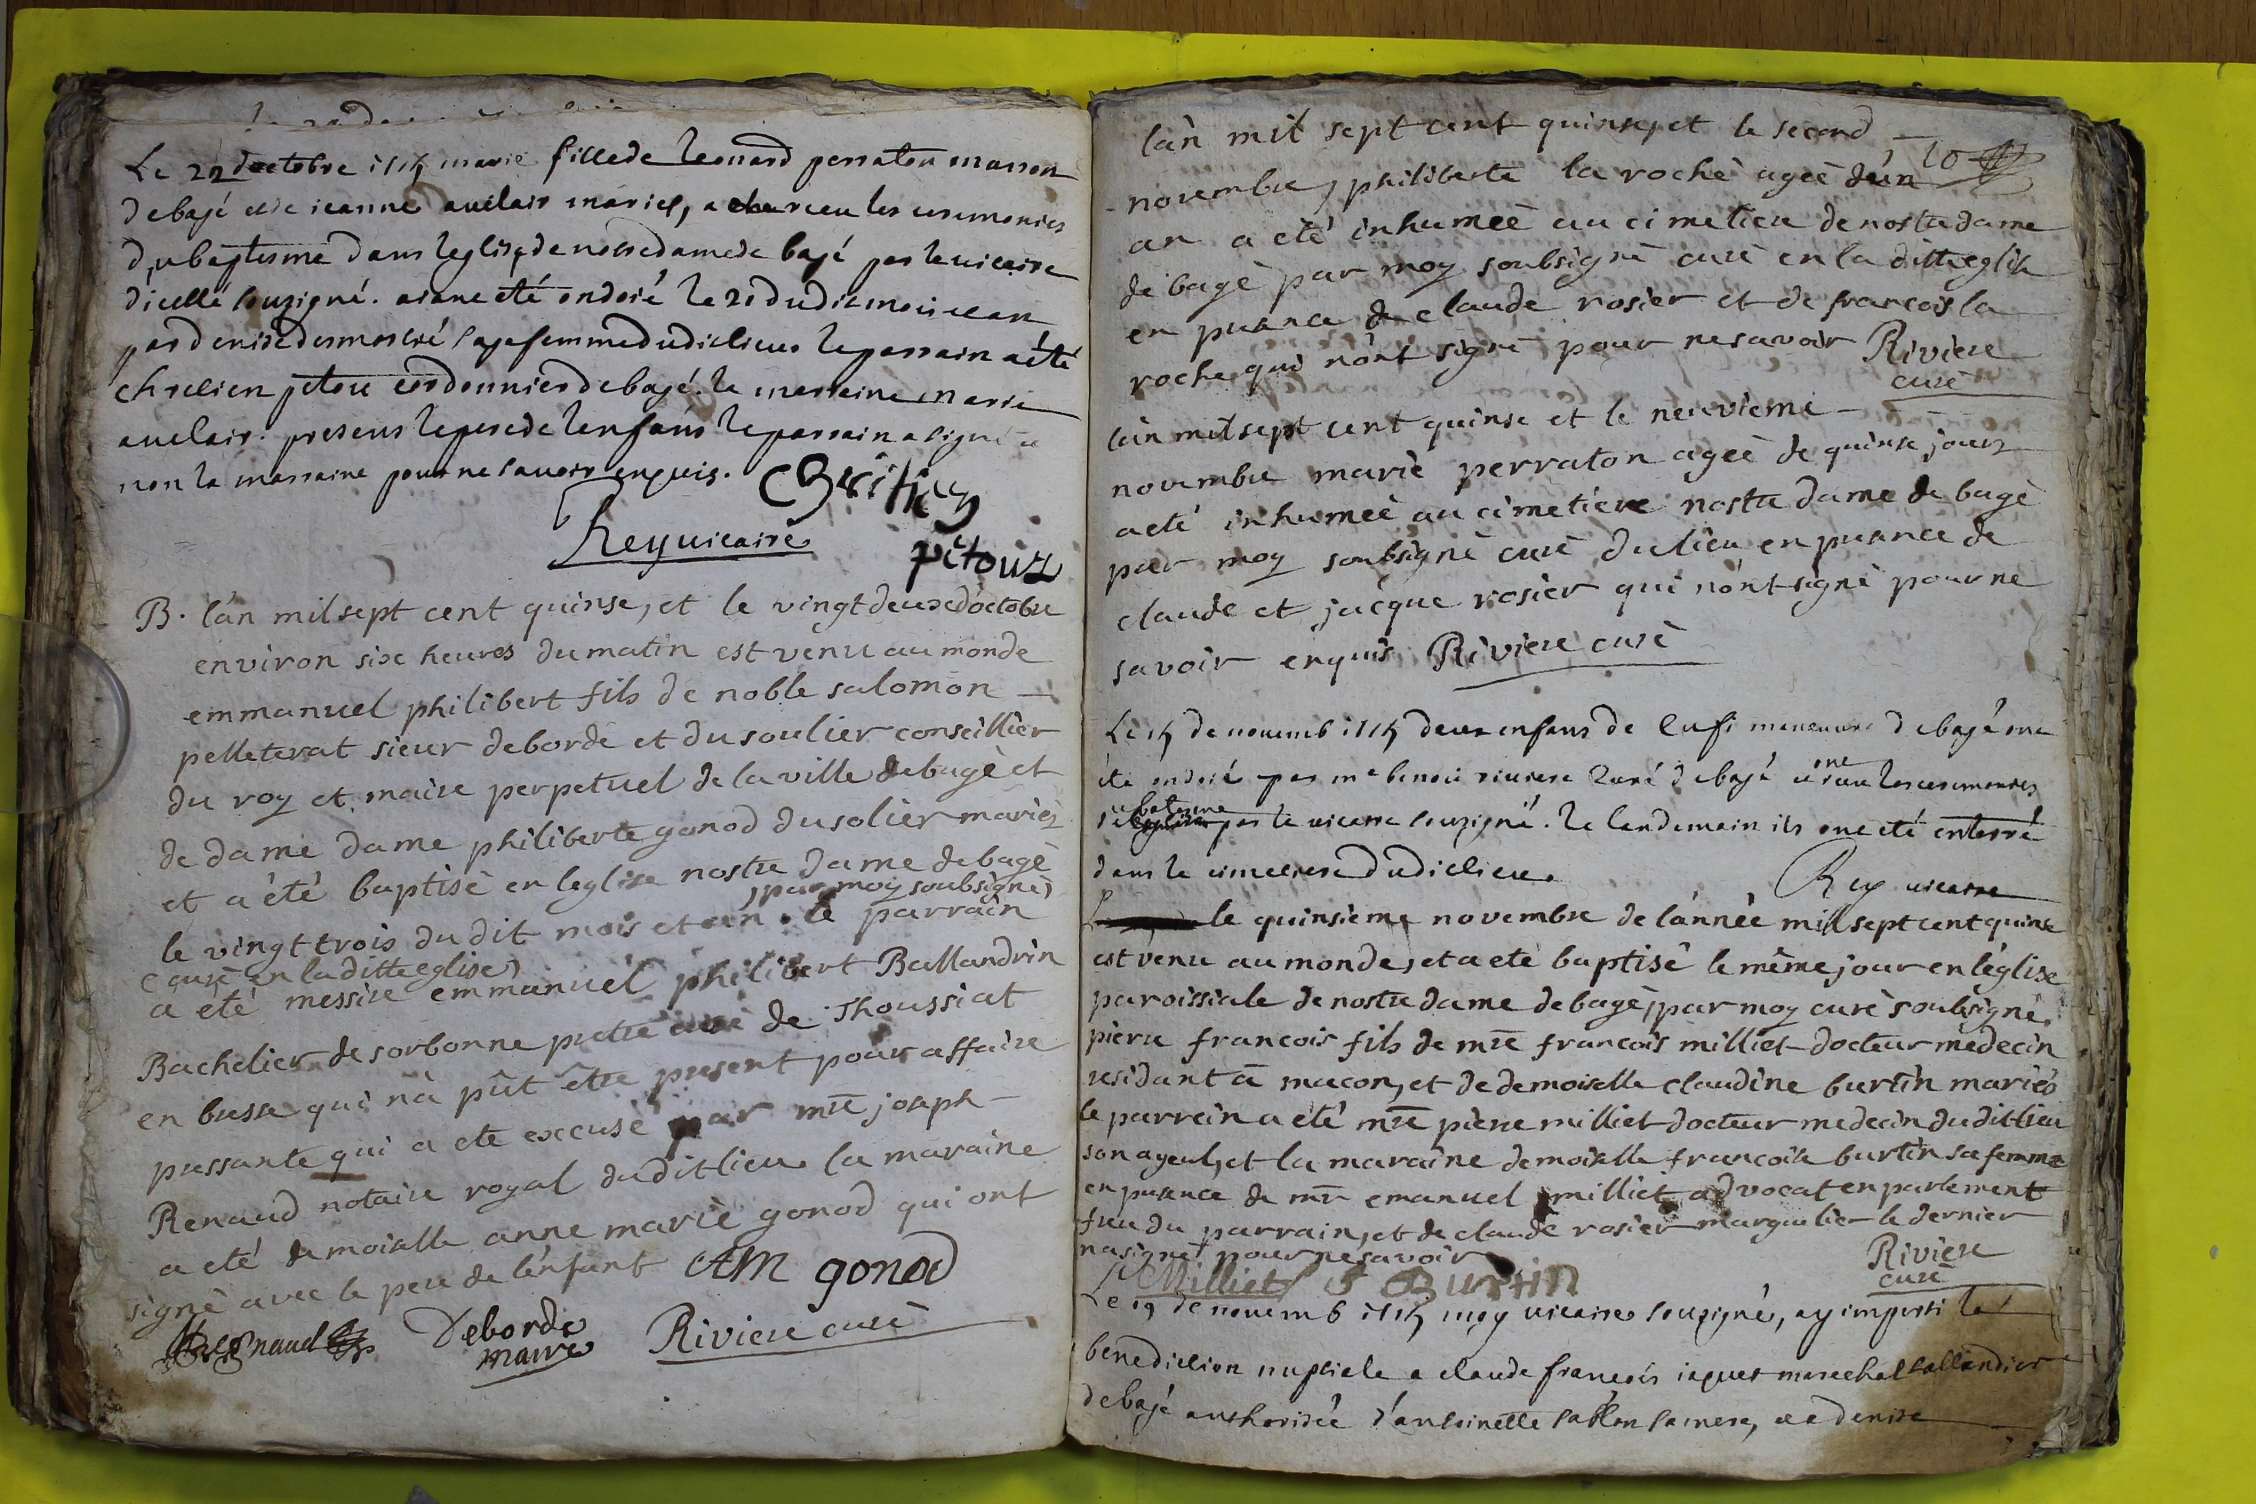 Le 22 doctobre 1715 marie fille de leonard perraton masson
de bagé et de jeanne auclair mariés, a receu les ceremonies
du baptesme dans leglise de notre dame de bagé par le vicaire
dicelle souzigné. aiant été ondoié le 20 dudit mois et an
par denise desmostré sagefemme dudit lieu. le parrain a été
chretien petou cordonnier de bagé. la marraine marie
auclair. presens le pere de lenfans le parrain a signé et
non la marraine pour ne savoir enquis. Chritien
Rey vicaire pétouz
B. lán mil sept cent quinse, et le vingt deuxe doctobre
environ sixe heures du matin est venu au monde
emmanuel philibert fils de noble salomon
pelleterat sieur deborde et du soulier conseillier
du roy et maire perpetuel de la ville de bagè et
de dame dame philiberte gonod du solier mariez
et a été baptisè en leglise nostre dame de bagè
(par moy soubsignè)
le vingt trois du dit mois et an. le parrain
(curè en la ditte eglise)
a été messire emmanuel philibert Ballandrin
Bachelier de sorbonne pretre curé de Thoussiat
en bresse qui nà pût être present pour affaire
pressante qui a ete excusé par mre joseph
Renaud notaire royal du dit lieu la maraine
a eté demoiselle anne marie gonod qui ont
signè avec le pere de lénfant AM gonod
Regnaud Deborde maire Riviere curè
lán mil sept cent quinse, et le second
10
novembre, philiberte la roche agée dún
an a eté inhumeè au cimetiere de nostre dame
de bagè par moy soubsignè curè en la ditte eglise
en presence de claude rosier et de francois la
roche qui nónt signè pour ne savoir Riviere
curè
lán mil sept cent quinse et le neuvieme
novembre marie perraton ageè de quinse jours
a eté inhumeè au cimetiere nostre dame de bagè
par moy soubsignè curè du lieu en presence de
claude et jacque rosier qui nónt signè pour ne
savoir enquis Riviere curè
Le 15 de novemb 1715 deux enfans de de bagé ont
été ondoié par me benoit riviere curé de bagé et ont receu les ceremonies
du batesme par le vicaire souzigné. le lendemain ils ont été enterré
dans le cimetiere dudit lieu.
Rey vicaire
le quinsieme novembre de lánnée mil sept cent quinse
est venu au monde, et a eté baptisé le même jour en léglise
paroissiale de nostre dame de bagè, par moy curè soubsigné,
pierre francois fils de mre francois milliet docteur médecin
residant à macon, et de demoiselle claudine burtin mariés
le parrein a eté mre pierre milliet docteur medecin du dit lieu
son ayeul, et la maraine demoiselle francoise burtin sa femme
en presence de mre emanuel milliet advocat en parlement
freu du parrain, et de claude rosier marguilier le dernier
na signé pour ne savoir Riviere
curè
Milliet f Burtin
Le 19 de novemb 1715 moy vicaire souzigné, ay imparti la
benediction nuptiale a claude françois jaquet marechal tallandier
de bagé authorisée dantoinette sa mere, et a denise